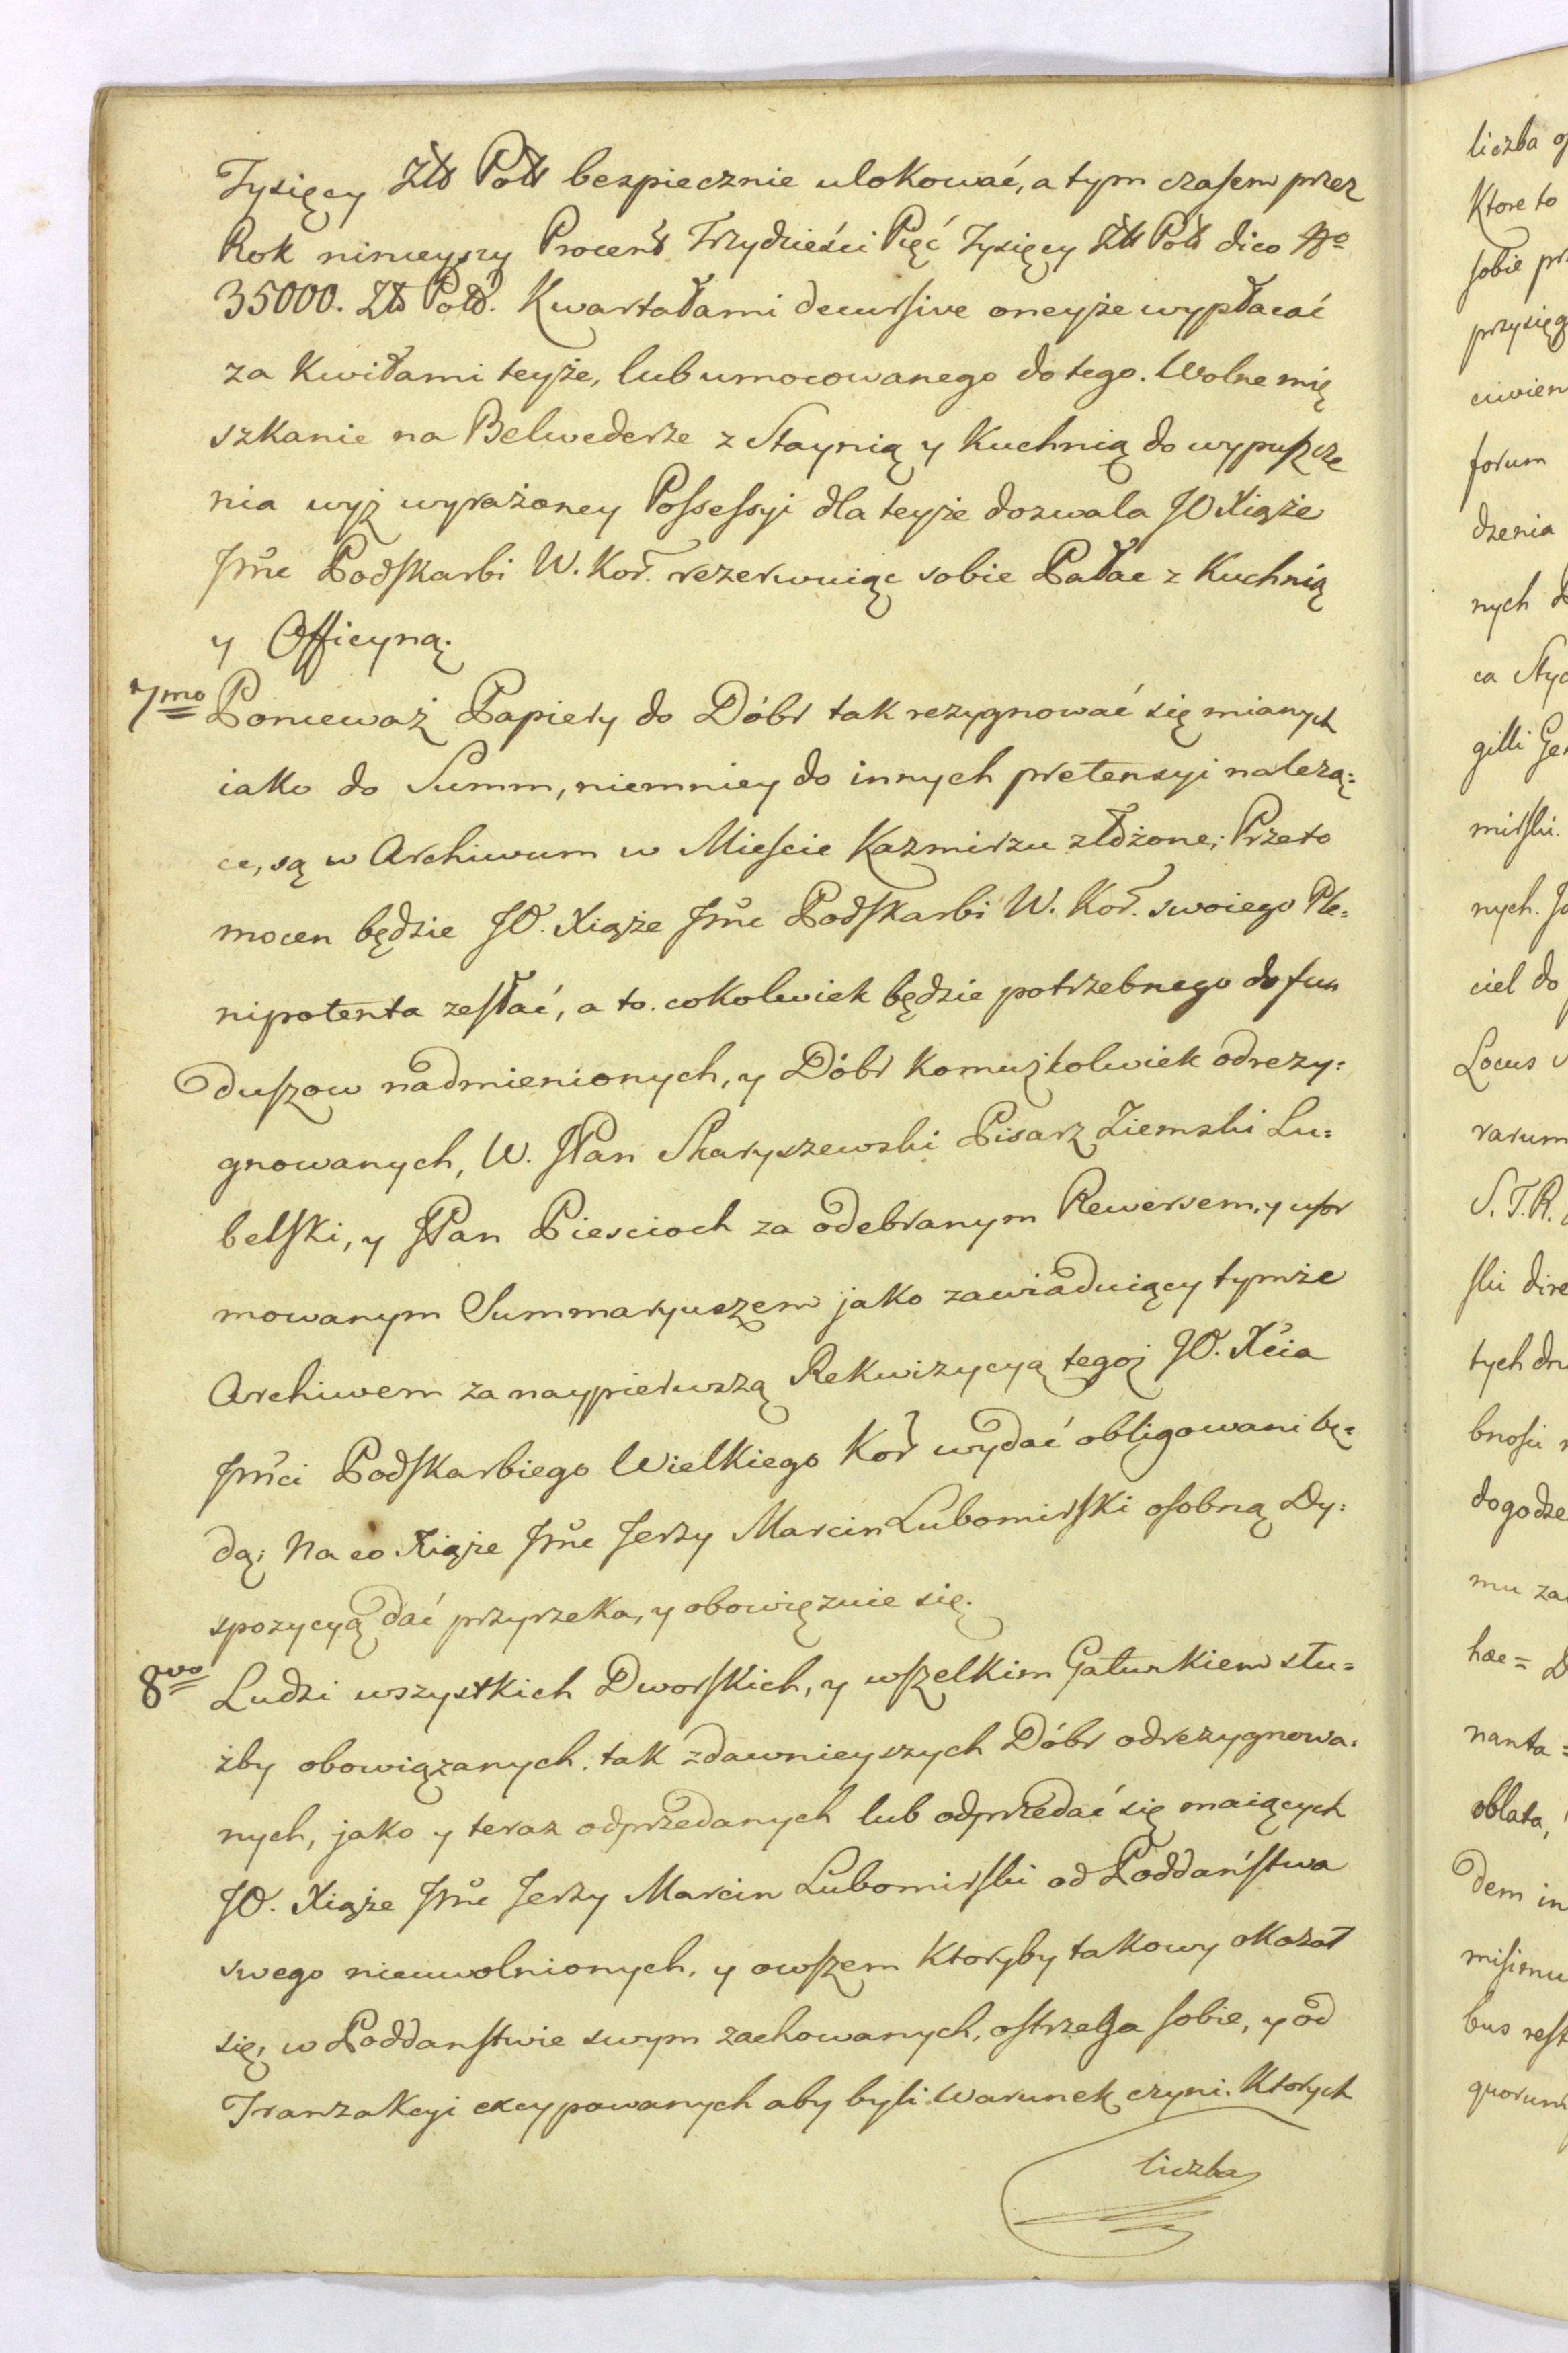 Tysięcy Złł Poll bezpiecznie ulokować, a tym czasem przez
Rok ninieyszy Procent Trzydzieści Pięć Tysięcy Złł Poll dico Nro
35000. Złł Poll. Kwartałami decursive oneyże wypłacać
za Kwitami teyże, lub umocowanego do tego. Wolne mię
szkanie na Belwederze z Staynią y Kuchnią do wypuszcze
nia wyż wyrażoney Possessyi dla teyże dozwala JO Xiąże
Jmć Podskarbi W. Kor. rezerwuiąc sobie Pałac z Kuchnią
y Officyną.
7mo Ponieważ Papiery do Dóbr tak rezygnować się mianych
iako do Summ, niemniey do innych pretensyi należą=
ce, są w Archiwum w Mieście Kazmirzu złożone; Przeto
mocen będzie JO. Xiąże Jmć Podskarbi W. Kor. swoiego Ple=
nipotenta zesłać, a to cokolwiek będzie potrzebnego do fun
duszow nadmienionych, y Dóbr komużkolwiek odrezy=
gnowanych, W. JPan Skaryszewski Pisarz Ziemski Lu=
belski, y JPan Piescioch za odebranym Rewersem, y ufor
mowanym Summaryuszem jako zawiaduiący tymże
Archiwem za naypierwszą Rekwizycyą tegoż JO. Xcia
Jmci Podskarbiego Wielkiego Kor wydać obligowani bę=
dą; Na co Xiąże Jmć Jerzy Marcin Lubomirski osobną Dy=
spozycyą dać przyrzeka, y obowięzuie się.
8vo Ludzi wszystkich Dworskich, y wszelkim Gatunkiem słu=
żby obowiązanych, tak zdawnieyszych Dóbr odrezygnowa=
nych, jako y teraz odprzedanych lub odprzedać się maiących
JO. Xiąże Jmć Jerzy Marcin Lubomirski od Poddaństwa
swego nieuwolnionych, y owszem Ktoryby takowy okazał
się, w Poddanstwie swym zachowanych, ostrzega sobie, y od
Tranzakcyi excypowanych aby byli warunek czyni. Ktorych
liczba
liczba
Ktore to
sobie
forum
dzenia
nych
gilli
mirski.
nych.
ciel do
Locus
rarum
S. T. R.
ski
tych
mu
hæc=
nanta=
oblata,
dem in
bus
quorum